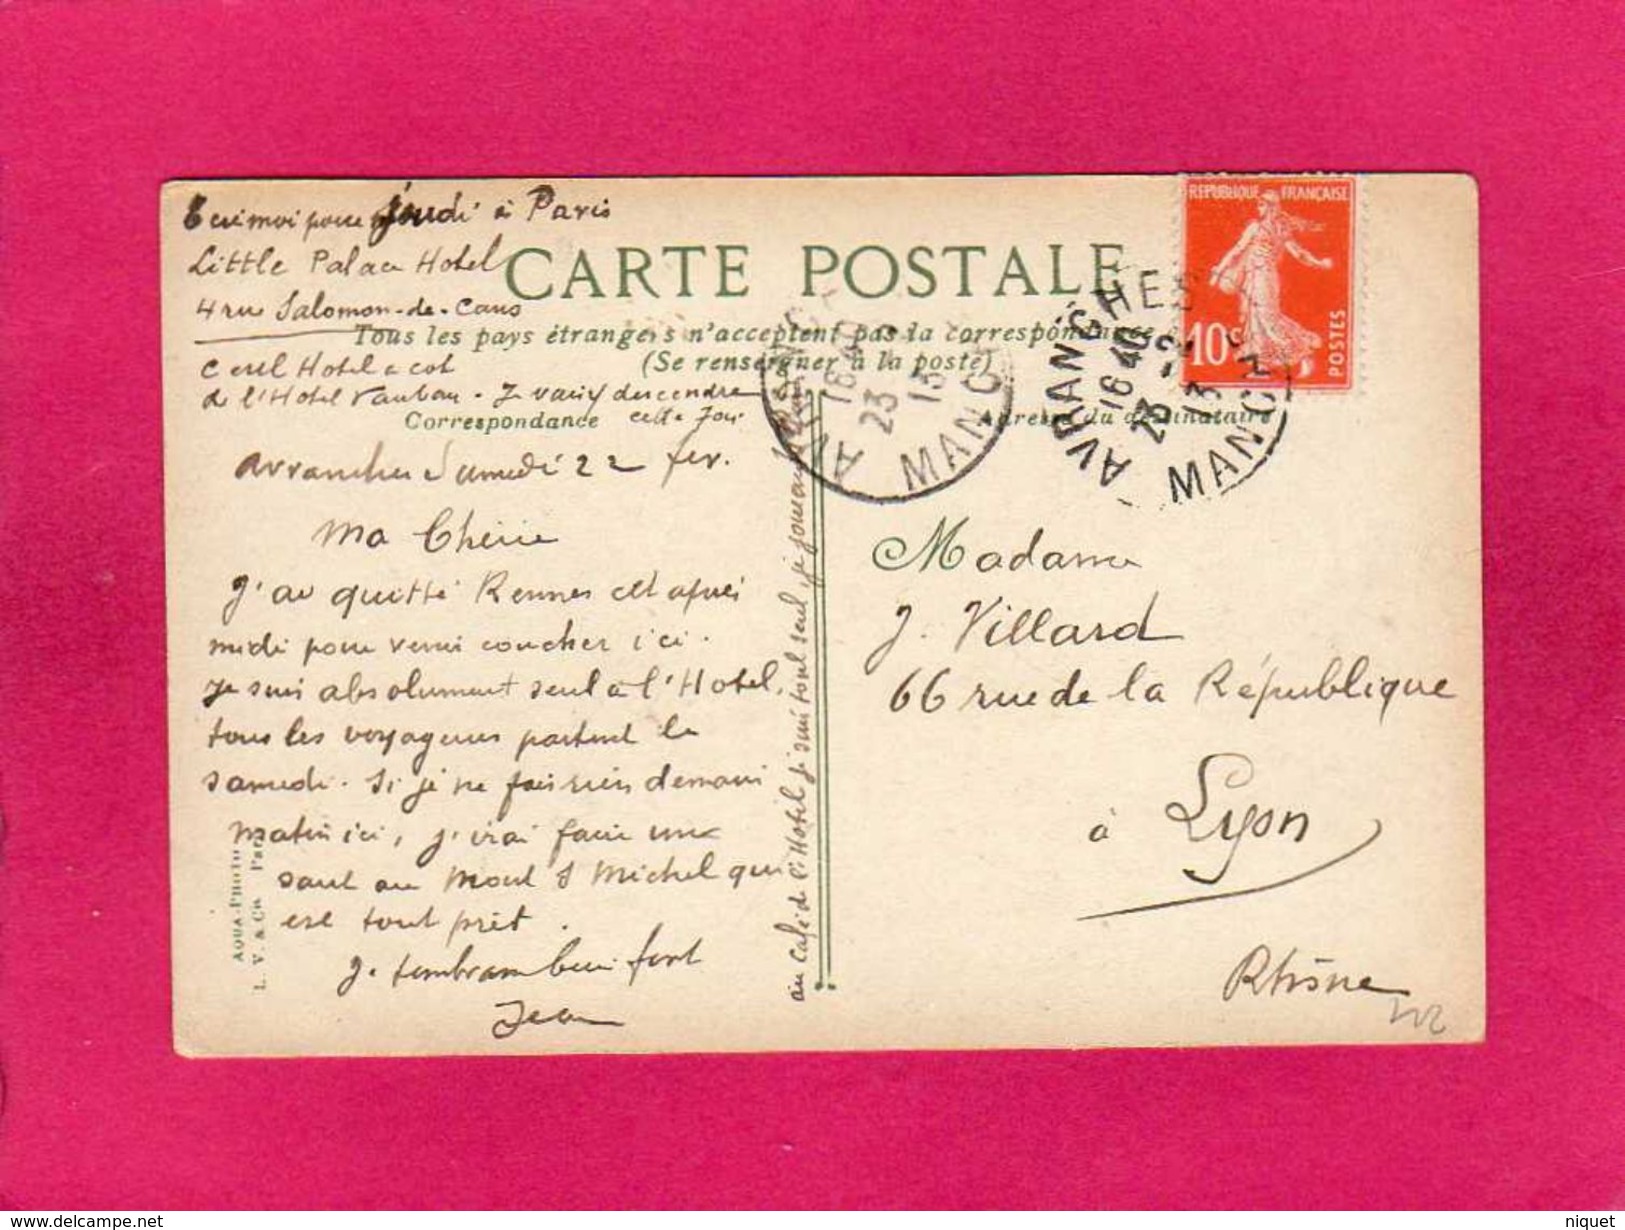 Ecris moi pour jeudi à Paris
Little Palace Hotel
4 rue Salomon-de-Caus
C'est l'Hotel a coté
de l'Hotel Vauban. Je vais y descendre
cette fois
CARTE POSTALE
Tous les pays étrangers n'acceptent pas la correspondance
(Se renseigner à la poste)
Correspondance
Adresse du destinataire
REPUBLIQUE FRANÇAISE
10c
POSTES
AVRANCHES
16 40
23
13
MANCHE
AVRANCHES
16 40
23
13
MANCHE
Avranches Samedi 22 fev.
Ma Chérie
J'ai quitté Rennes cet après
midi pour venir coucher ici.
Je suis absolument seul à l'Hotel,
tous les voyageurs partent le
samedi. Si je ne fais rien demain
matin ici, j'irai faire une
saut au Mont St Michel qui
est tout prêt.
Je t'embrasse bien fort
Jean
au café de l'Hotel je suis tout seul, je
Madame
J. Villard
66 rue de la République
à Lyon
Rhône
AQUA-PHOTO
L. V. & Cie Paris
niquet
delcampe.net